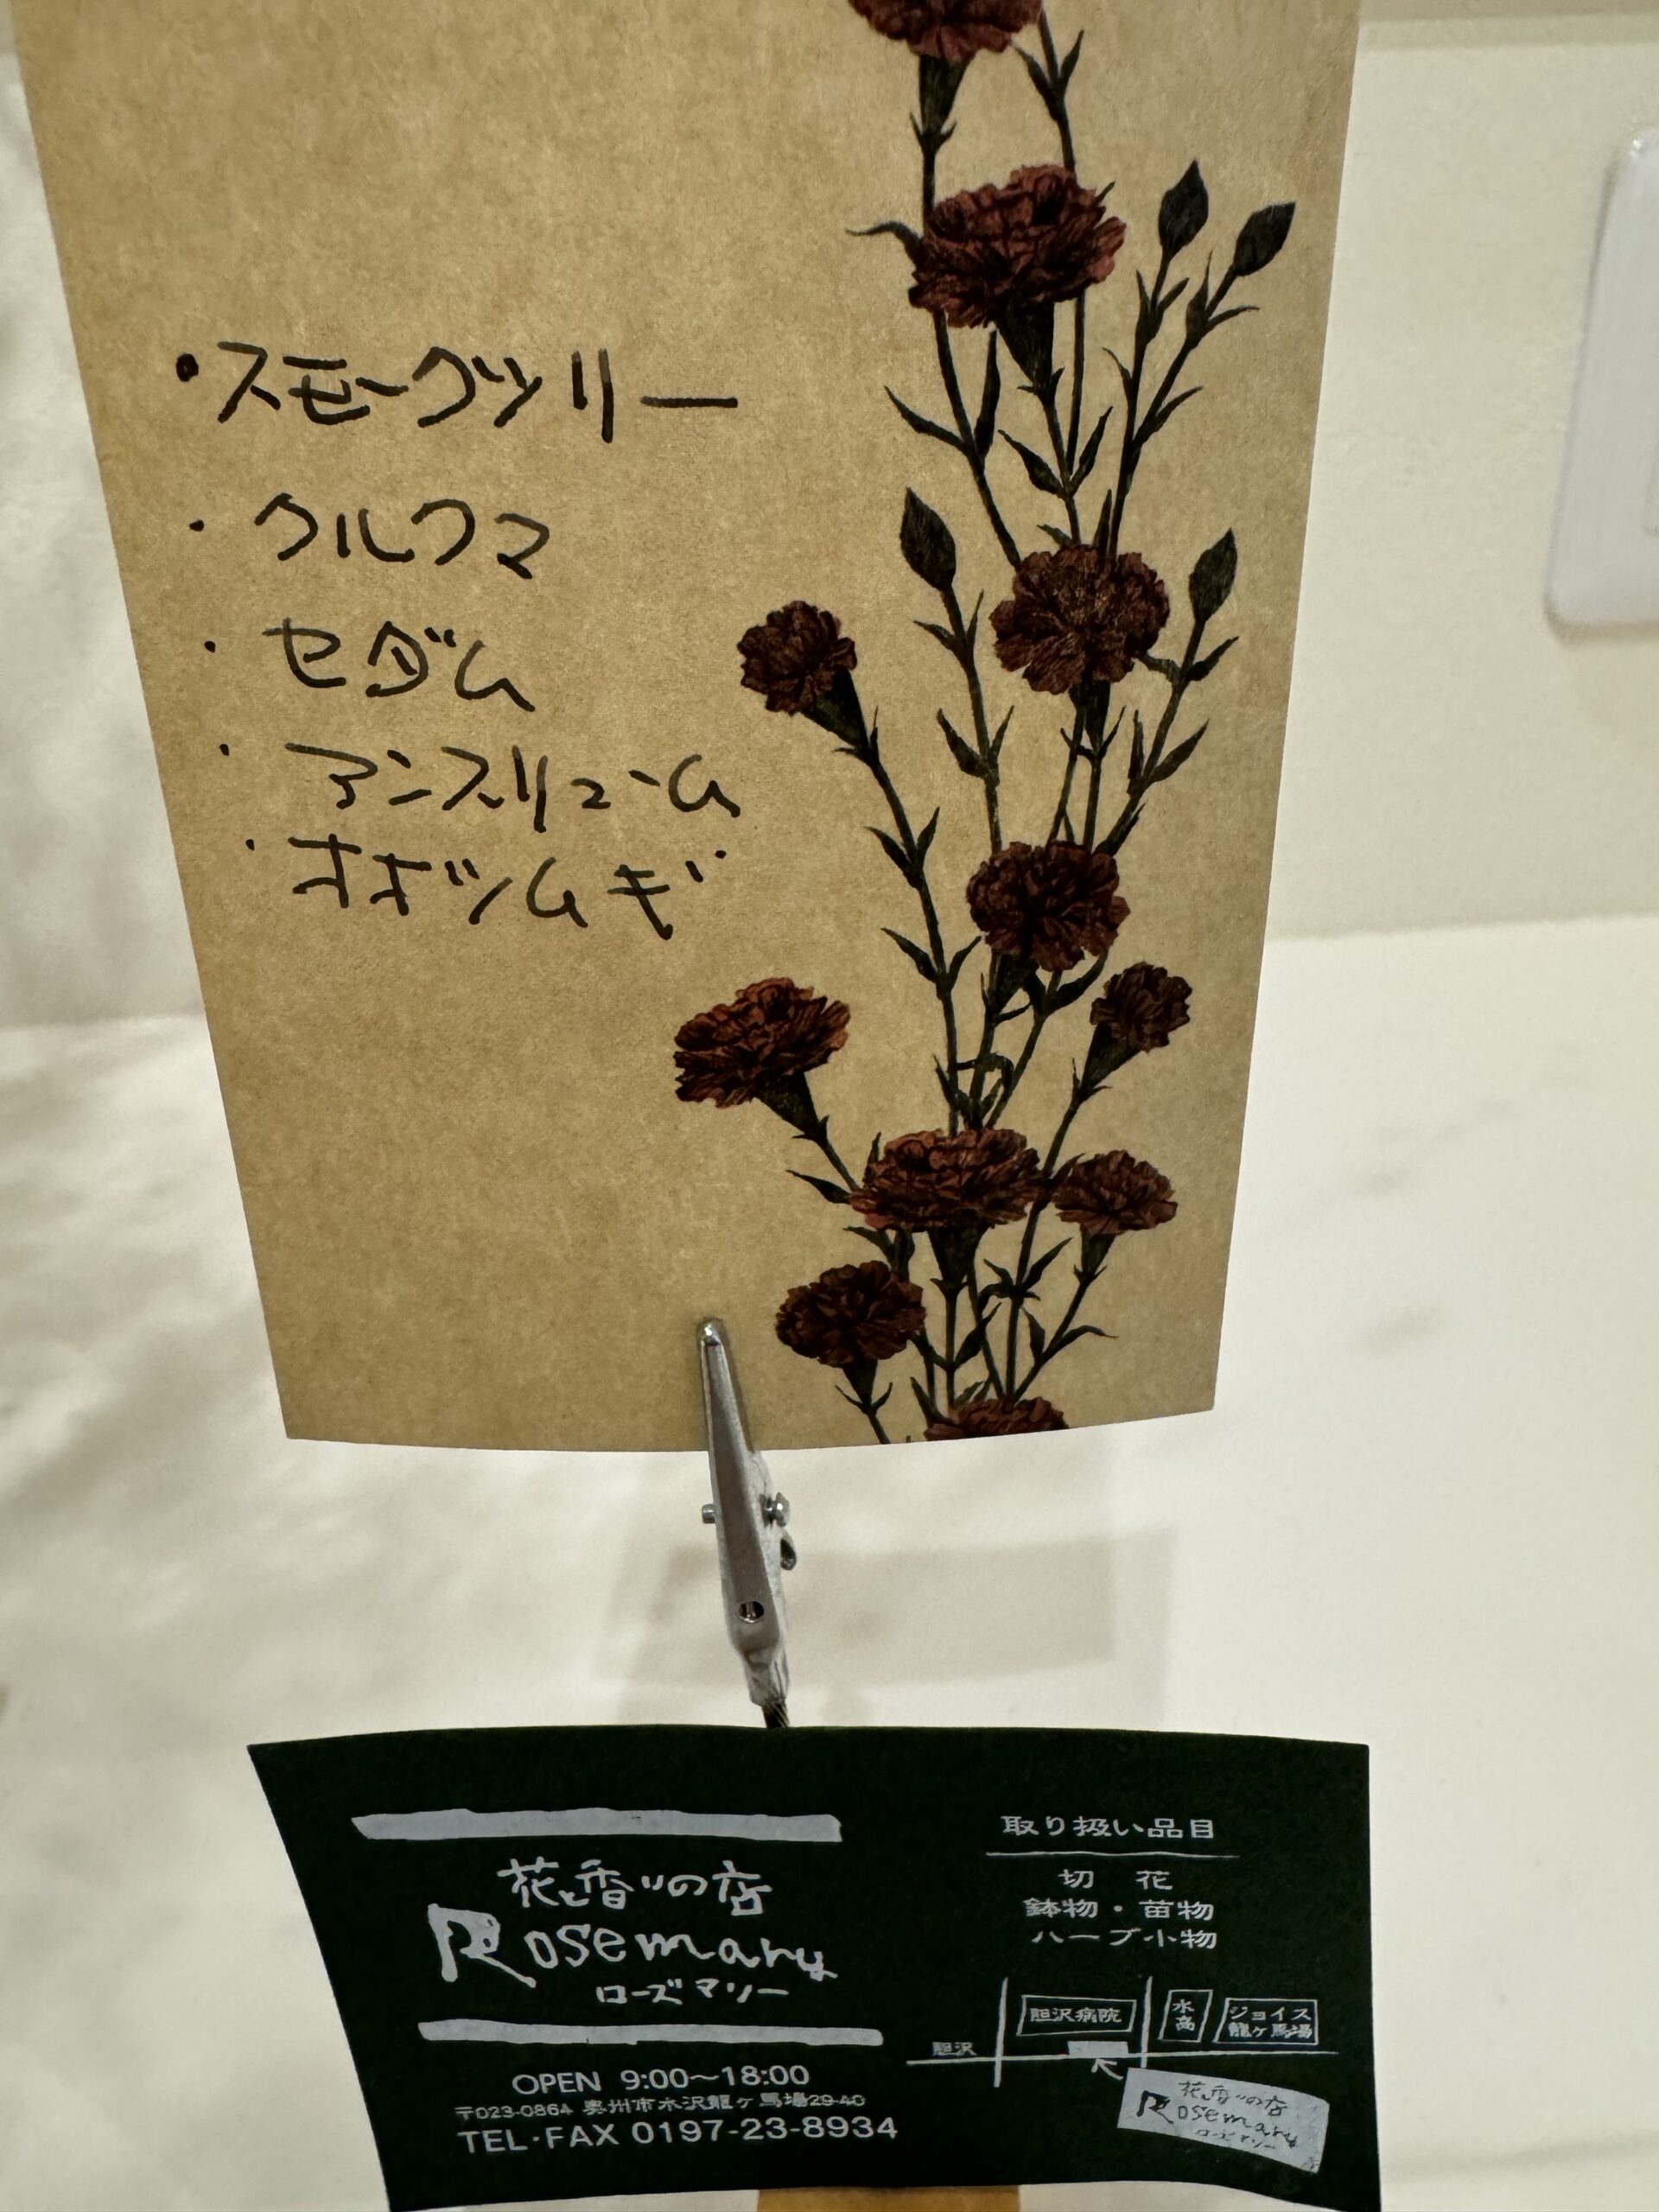 ・スモークツリー
・クルクマ
・セダム
・アンスリューム
・オオツムギ
花と香りの店
Rosemary
ローズマリー
OPEN 9:00〜18:00
〒023-0864 奥州市水沢龍ヶ馬場29-40
TEL・FAX 0197-23-8934
取り扱い品目
切 花
鉢物・苗物
ハーブ小物
胆沢病院
水高
ジョイス
龍ヶ馬場
胆沢
花と香りの店
Rosemary
ローズマリー